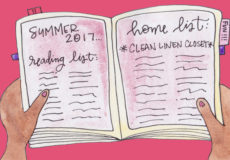 SUMMER
2017...
reading list:
home list:
*CLEAN LINEN CLOSET*